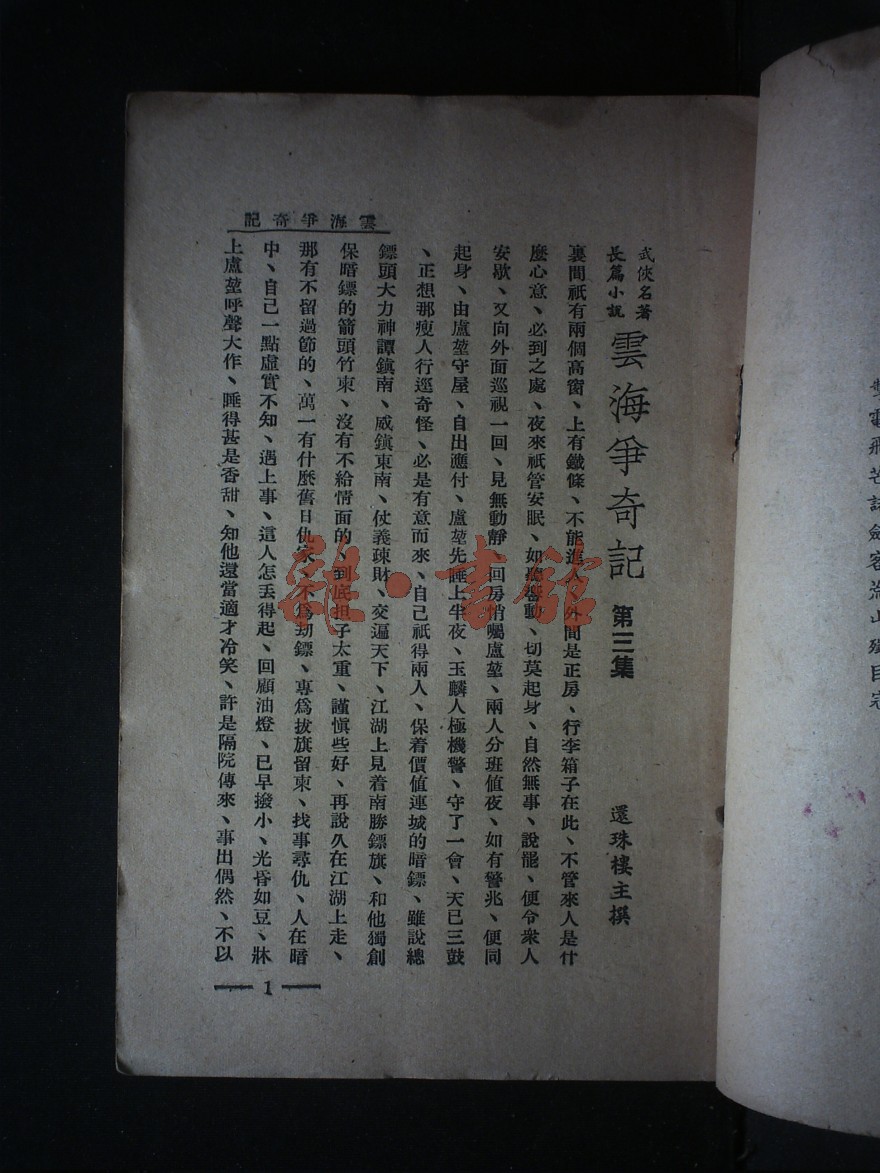 武俠名著
長篇小說
雲海爭奇記 第三集
還珠樓主撰
裏間祇有兩個高窗、上有鐵條、不能進人、外間是正房、行李箱子在此、不管來人是什
麼心意、必到之處、夜來祇管安眠、如聽響動、切莫起身、自然無事、說罷、便令衆人
安歇、又向外面巡視一回、見無動靜、回房悄囑盧堃、兩人分班值夜、如有警兆、便同
起身、由盧堃守屋、自出應付、盧堃先睡上半夜、玉麟人極機警、守了一會、天已三鼓
、正想那瘦人行逕奇怪、必是有意而來、自己祇得兩人、保着價值連城的暗鏢、雖說總
鏢頭大力神譚鎮南、威鎮東南、仗義疎財、交遍天下、江湖上見着南勝鏢旗、和他獨創
保暗鏢的箭頭竹柬、沒有不給情面的、到底担子太重、謹愼些好、再說久在江湖上走、
那有不留過節的、萬一有什麼舊日仇家、不爲刧鏢、專爲拔旗留柬、找事尋仇、人在暗
中、自己一點虛實不知、遇上事、這人怎丟得起、回顧油燈、已早撥小、光昏如豆、牀
上盧堃呼聲大作、睡得甚是香甜、知他還當適才冷笑、許是隔院傳來、事出偶然、不以
雲海爭奇記
1
雜·書館
飛
劍客
山
目